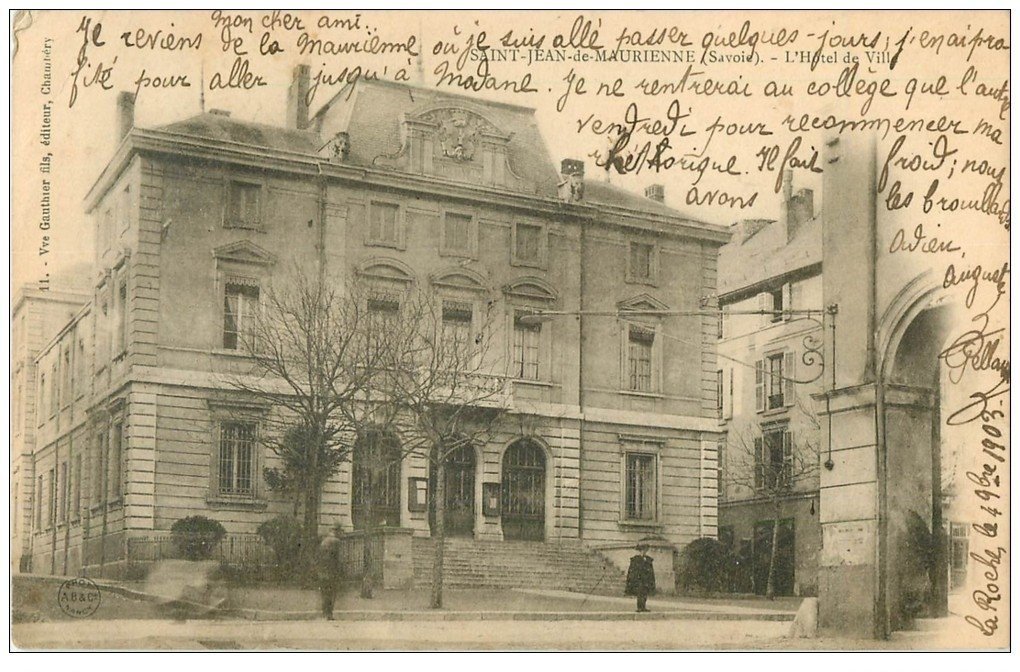 mon cher ami.
Je reviens de la Maurienne où je suis allé passer quelques-jours; j'en ai pro
fité pour aller jusqu'à Modane. Je ne rentrerai au collège que l'autre
vendredi pour recommencer ma
rhétorique. Il fait froid; nous
avons les brouillards
Adieu,
auguste
la Roche, le 4 9bre 1903.
SAINT-JEAN-de-MAURIENNE (Savoie). - L'Hôtel de Ville
11. - Vve Gauthier fils, éditeur, Chambéry
A.B.&Cie
NANCY